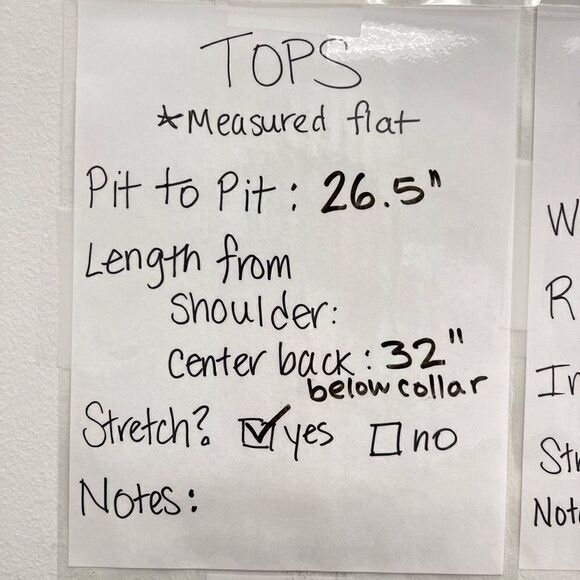 TOPS
*Measured flat
Pit to Pit: 26.5"
Length from
Shoulder:
Center back: 32"
below collar
Stretch? ☑ yes ☐ no
Notes:
W
R
In
Str
Not